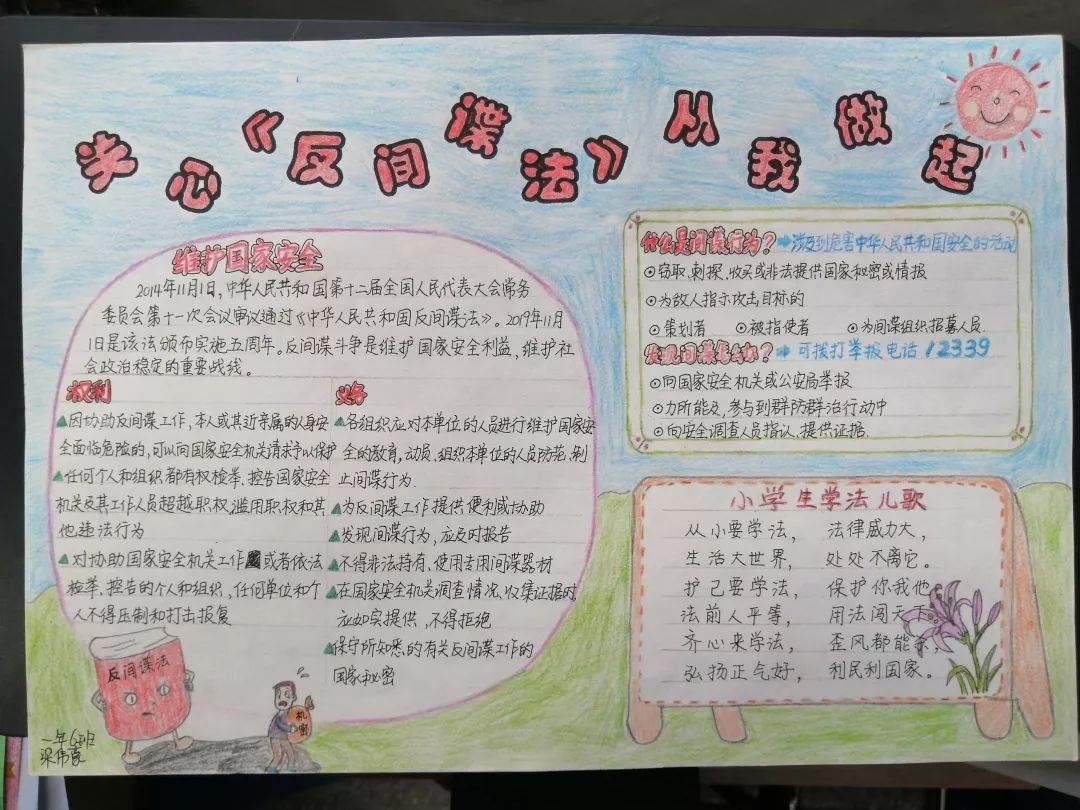 关心《反间谍法》从我做起
维护国家安全
2014年11月1日,中华人民共和国第十二届全国人民代表大会常务
委员会第十一次会议审议通过《中华人民共和国反间谍法》。2019年11月
1日是该法颁布实施五周年。反间谍斗争是维护国家安全利益,维护社
会政治稳定的重要战线。
权利
▲因协助反间谍工作,本人或其近亲属的人身安
全面临危险的,可以向国家安全机关请求予以保护
▲任何个人和组织都有权检举、控告国家安全
机关及其工作人员超越职权,滥用职权和其
他违法行为
▲对协助国家安全机关工作或者依法
检举、控告的个人和组织,任何单位和个
人不得压制和打击报复
义务
▲各组织应对本单位的人员进行维护国家安
全的教育,动员、组织本单位的人员防范、制
止间谍行为.
▲为反间谍工作提供便利或协助
▲发现间谍行为,应及时报告
▲不得非法持有、使用专用间谍器材
▲在国家安全机关调查情况、收集证据时,
应如实提供,不得拒绝
▲保守所知悉的有关反间谍工作的
国家秘密
什么是间谍行为?➡涉及到危害中华人民共和国安全的活动
⊙窃取、刺探、收买或非法提供国家秘密或情报
⊙为敌人指示攻击目标的
⊙策划者 ⊙被指使者 ⊙为间谍组织招募人员.
发现间谍怎么办?➡可拨打举报电话12339
⊙向国家安全机关或公安局举报
⊙力所能及,参与到群防群治行动中
⊙向安全调查人员指认、提供证据.
小学生学法儿歌
从小要学法, 法律威力大,
生活大世界, 处处不离它。
护己要学法, 保护你我他,
法前人平等, 用法闯天
齐心来学法, 歪风都能
弘扬正气好, 利民利国家。
反间谍法
机密
一年6班
梁伟